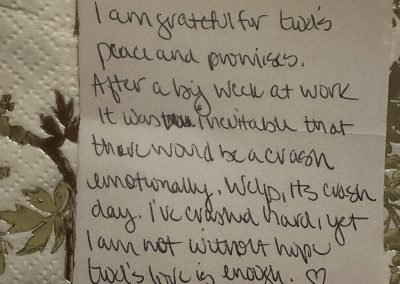 I am grateful for God's
peace and promises.
After a big week at work
it was inevitable that
there would be a crash
emotionally. Welp, its crash
day. I've crashed hard, yet
I am not without hope
God's love is enough. ♡